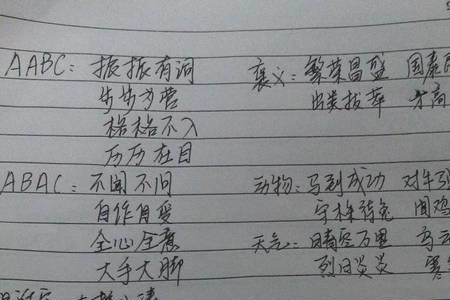 AABC: 振振有词 褒义: 繁荣昌盛 国泰
步步为营 出类拔萃 才高
格格不入
历历在目
ABAC: 不闻不问 动物: 马到成功 对牛
自作自受 守株待兔 闻鸡
全心全意 天气: 晴空万里 乌云
大手大脚 烈日炎炎